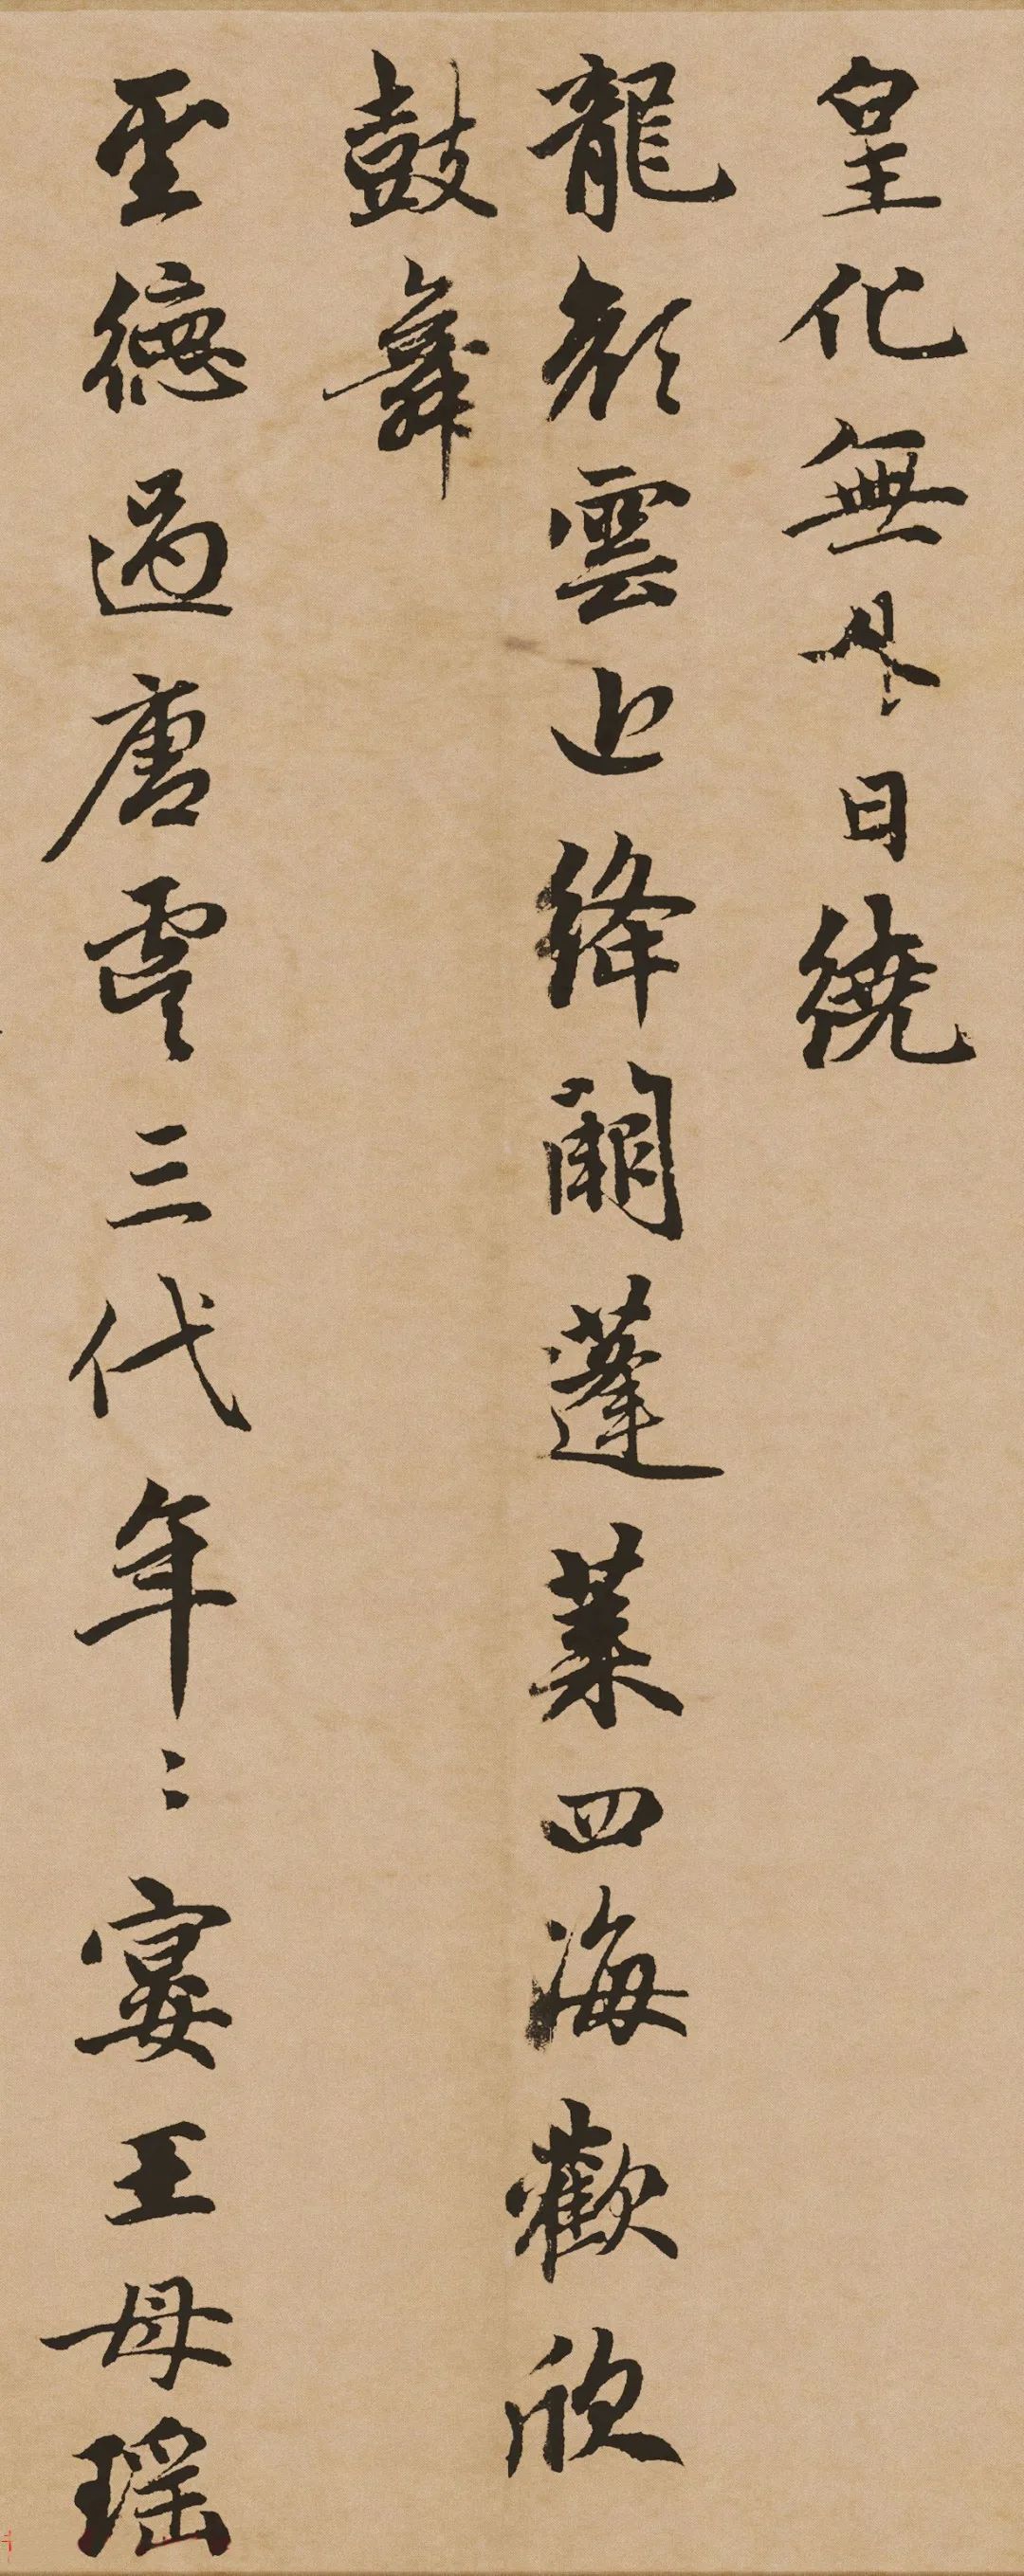 皇化無日繞
龍顔雲近絳闕蓬萊四海歡欣
鼓舞
聖德過唐虞三代年〻宴王母瑶